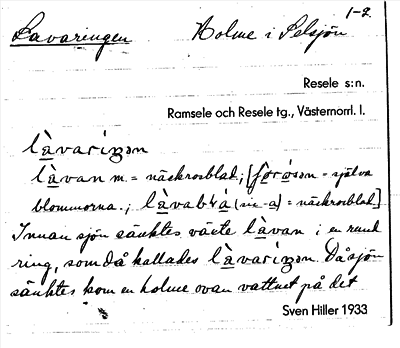 1-2
Lavaringen Holme i Selsjön
Resele s:n.
Ramsele och Resele tg., Västernorrl. l.
làvariŋən
làvan m = näckrosblad; [fòròsən = själva
blommorna.; làvabḷá (sic -a) = näckrosblad]
Innan sjön sänktes växte làvan i en rund
ring, som då kallades làvariŋən. Då sjön
sänktes kom en holme ovan vattnet på det
Sven Hiller 1933